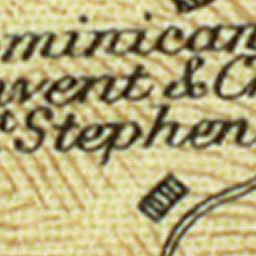 minican
vent & C
Stephen